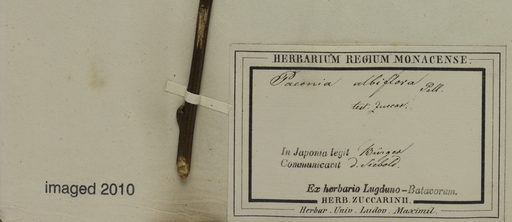 HERBARIUM REGIUM MONACENSE.
Paeonia albiflora Pall.
test. Zuccar.
In Japonia legit Bürger
Communicavit d. Siebold.
Ex herbario Lugduno-Batavorum.
HERB. ZUCCARINII.
Herbar. Univ. Ludov. Maximil.
imaged 2010